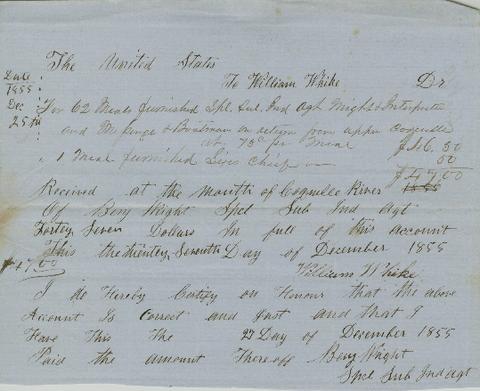 The United States
To William Whike Dr
Date
1855
Dec
25th
For 62 Meals furnished Spl. Sub. Ind Agt Wright & Interpreter
and & Boatman on return from upper Coquille
at 75c per Meal $46.50
" 1 Meal furnished Chief 50
$47.00
Received at the Mouth of Coquille River 1855
Of Benj Wright Spcl Sub Ind Agt
Forty Seven Dollars In full of this account
This the Twenty Seventh Day of December 1855
William Whike
I do Hereby Certify on Honour that the above
Account Is Correct and Just and that I
Have This The 27 Day of December 1855
Paid the amount Thereoff Benj Wright
Spcl Sub Ind Agt